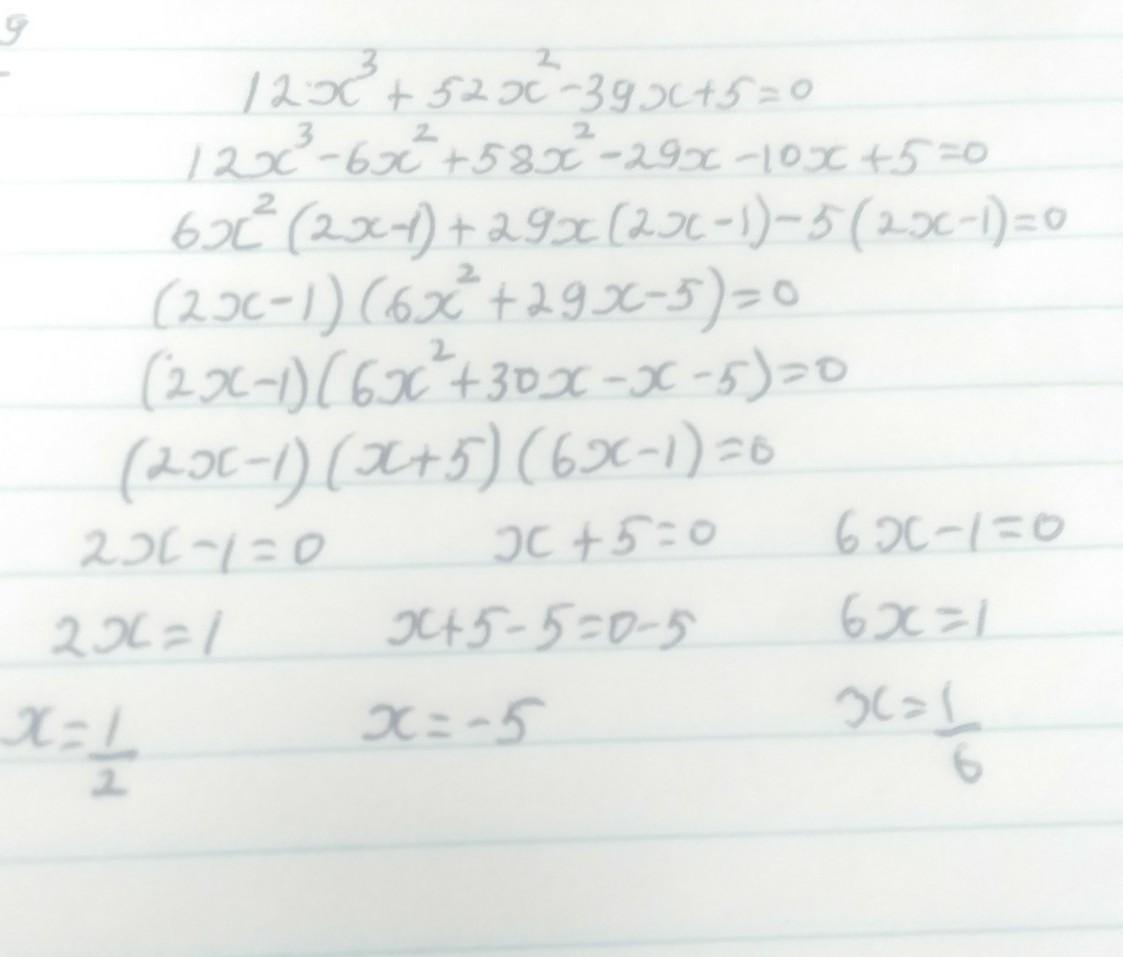 9
12x³ + 52x² - 39x + 5 = 0
12x³ - 6x² + 58x² - 29x - 10x + 5 = 0
6x² (2x-1) + 29x (2x-1) - 5 (2x-1) = 0
(2x-1) (6x² + 29x - 5) = 0
(2x-1) (6x² + 30x - x - 5) = 0
(2x-1) (x+5) (6x-1) = 0
2x-1 = 0 x + 5 = 0 6x-1 = 0
2x = 1 x+5-5 = 0-5 6x = 1
x = 1/2 x = -5 x = 1/6